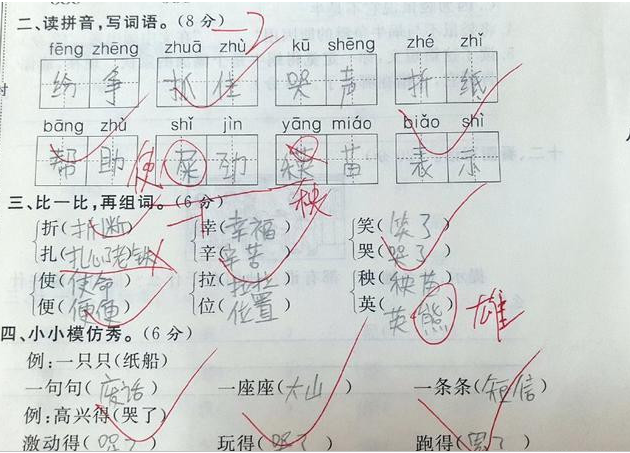 二、读拼音,写词语。(8分) -2
fēng zhēng zhuā zhù kū shēng zhé zhǐ
纷争 抓住 哭声 折纸
bāng zhù shǐ jìn yāng miáo biǎo shì
帮助 使 屎劲 苗 表示
三、比一比,再组词。(6分) -1 秧
折(折断) 幸(幸福) 笑(笑了)
扎(扎心了老铁) 辛(辛苦) 哭(哭了)
使(使命) 拉(拉拉) 秧(秧苗)
便(便便) 位(位置) 英(英熊) 雄
四、小小模仿秀。(6分)
例:一只只(纸船)
一句句(废话) 一座座(大山) 一条条(短信)
例:高兴得(哭了)
激动得(哭了) 玩得(哭了) 跑得(累了)